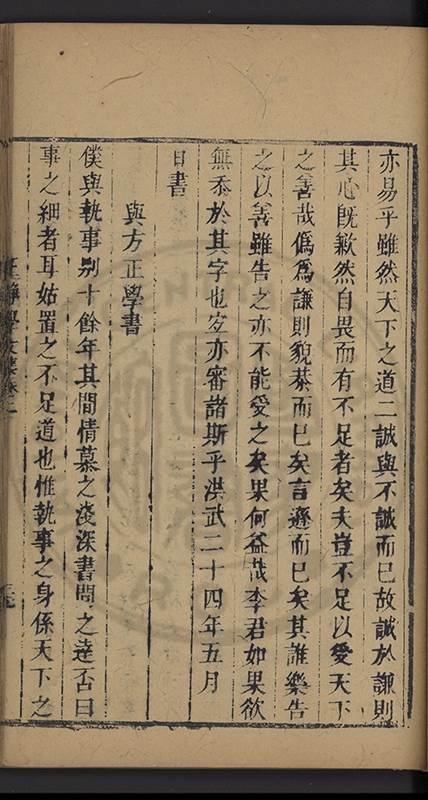 亦易乎雖然天下之道二誠與不誠而已故誠於謙則
其心旣歉然自畏而有不足者矣夫豈不足以受天下
之善哉僞爲謙則貌恭而已矣言遜而已矣其誰樂告
之以善雖告之亦不能受之矣果何益哉李君如果欲
無忝於其字也宜亦審諸斯乎洪武二十四年五月
日書
與方正學書
僕與執事别十餘年其間情慕之淺深書問之達否曰
事之細者耳姑置之不足道也惟執事之身係天下之
王靜學文集卷二